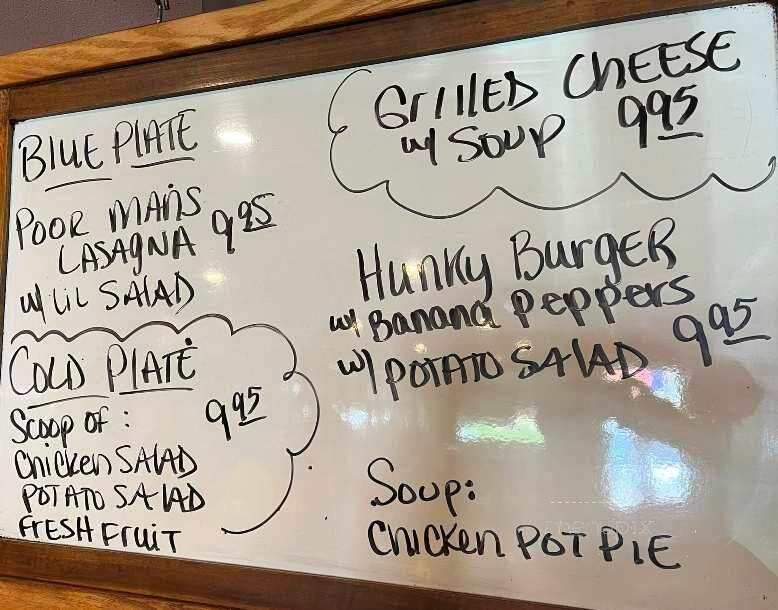 BLUE PLATE
POOR MAN'S 9 95
LASAGNA
w/ LIL SALAD
COLD PLATE
Scoop OF : 9 95
Chicken SALAD
POTATO SALAD
FRESH FRUIT
GrILLED CHEESE
w/ SOUP 9 95
Hunky BurgER
w/ Banana Peppers
w/ POTATO SALAD 9 95
Soup:
Chicken POT PIE